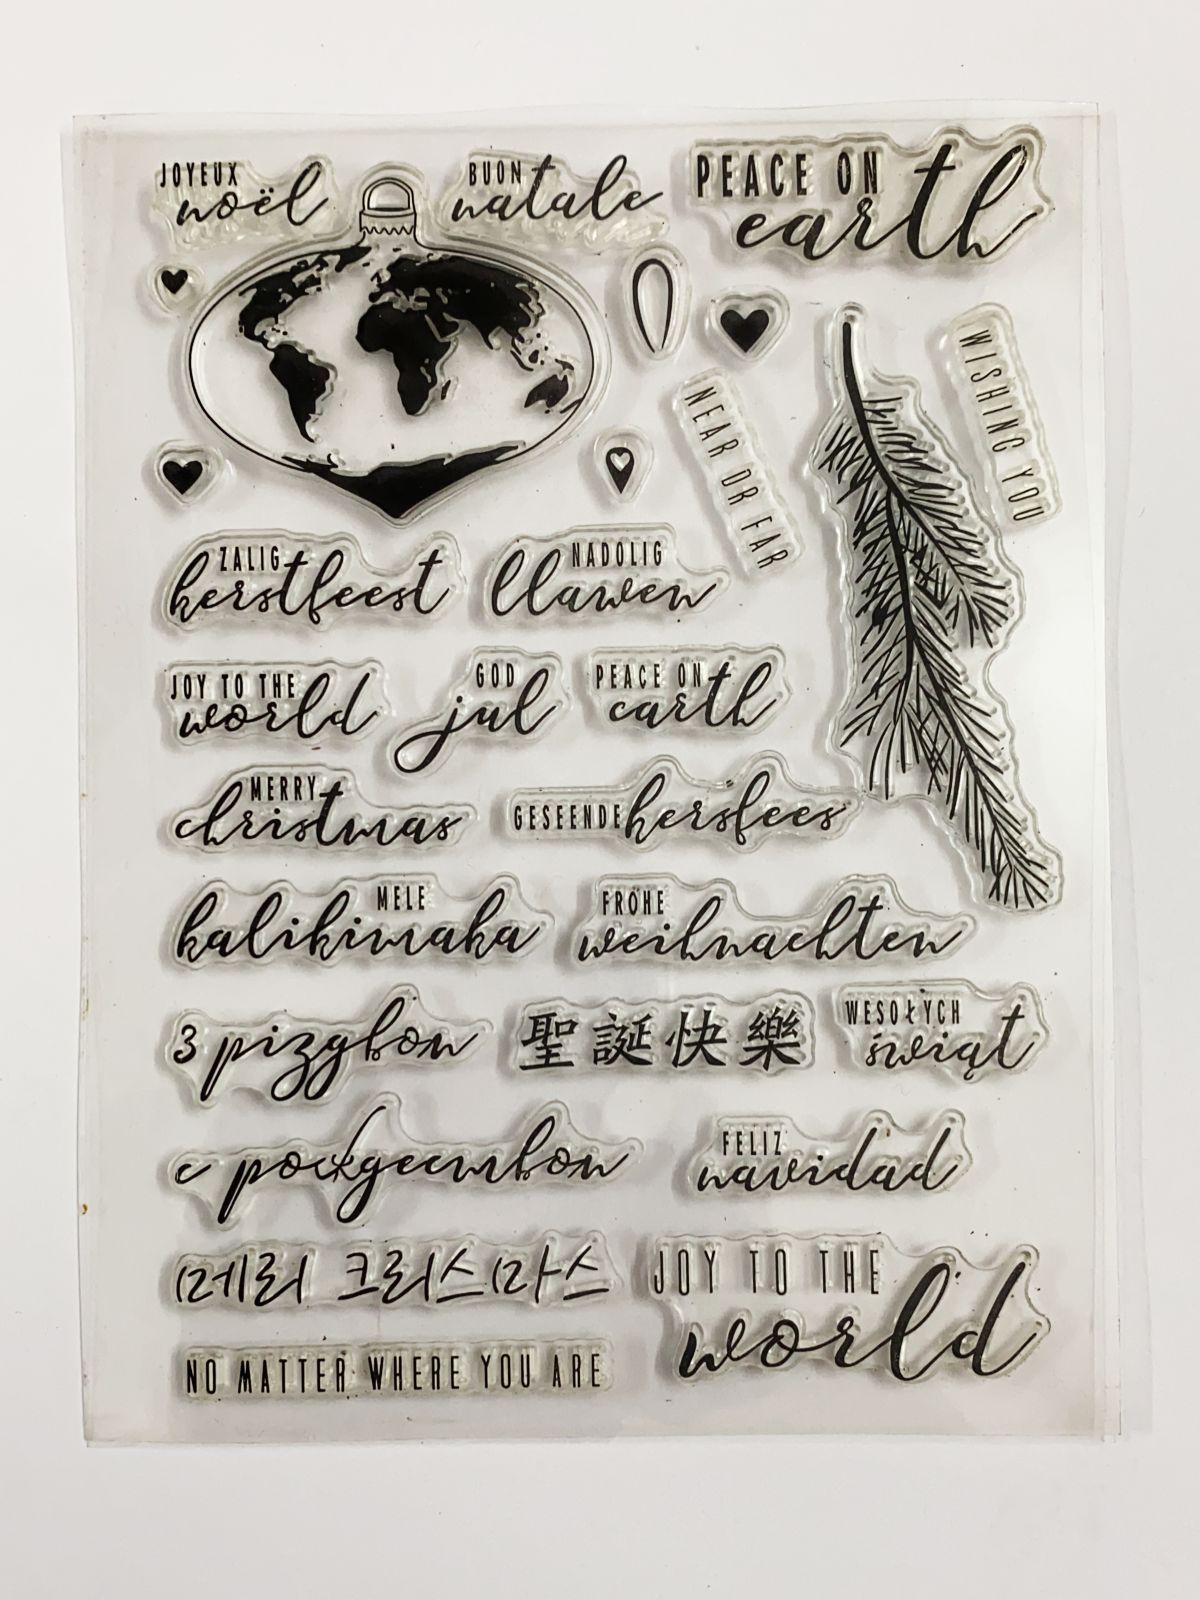 JOYEUX
noël
BUON
natale
PEACE ON
earth
WISHING YOU
NEAR OR FAR
ZALIG
kerstfeest
NADOLIG
llawen
JOY TO THE
world
GOD
jul
PEACE ON
earth
MERRY
christmas
GESEENDE kersfees
MELE
kalikimaka
FROHE
weihnachten
З різдвом
聖誕快樂
WESOŁYCH
świąt
с рождеством
FELIZ
navidad
메리 크리스마스
JOY TO THE
world
NO MATTER WHERE YOU ARE